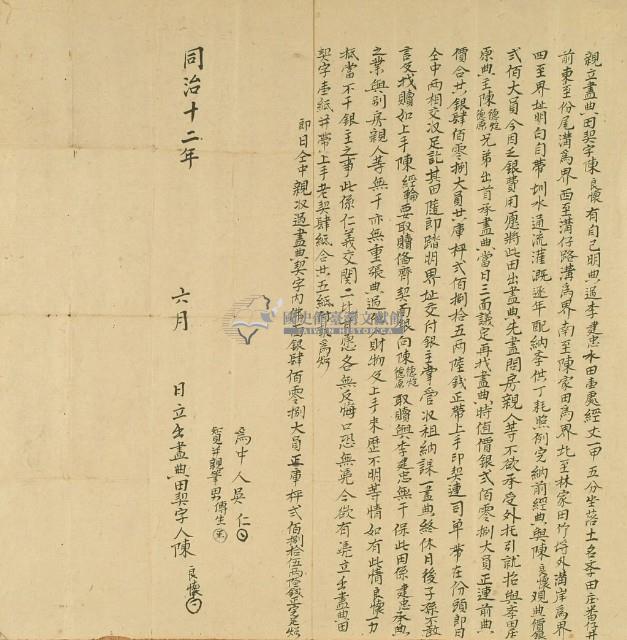 親立盡典田契字陳良懷有自己明典過李建忠水田壹處經丈一甲五分坐落土名李田庄番仔井
前東至份尾溝為界西至溝仔路溝為界南至陳家田為界北至林家田竹塆外溝岸為界
四至界址明白自帶圳水通流灌溉逐年配納李供丁耗照例完納前經典與陳良懷頭典價銀
弍佰大員今因乏銀費用愿將此田出盡典先盡問房親人等不欲承受外托引就抬與李田庄
原典主陳德碇德源兄弟出首承盡典當日三面議定再找盡典時值價銀弍佰零捌大員正連前典
價合共銀肆佰零捌大員共庫秤弍佰捌拾五兩陸錢正帶上手印契連司單帶在份頭即日
仝中兩相交收足訖其田隨即踏明界址交付銀主掌管收租納課一盡典終休日後子孫不敢
言及找贖如上手陳經輪要取贖備齊契面銀向陳德碇德源取贖與李建忠無干保此田係建忠承典
之業與別房親人等無干亦無重張典過他人財物及上手來歷不明等情如有此情良懷一力
抵當不干銀主之事此係仁義交関二比甘愿各無反悔口恐無憑今欲有憑立出盡典田
契字壹紙并帶上手老契肆紙合共五紙付執為炤
即日仝中親收過盡典契字內佛銀肆佰零捌大員正庫秤弍佰捌拾伍兩陸錢正完足炤
為中人吳仁
賢并親筆男傳生
同治十二年 六月 日立出盡典田契字人陳良懷
國史館臺灣文獻館
TAIWAN HISTORICA